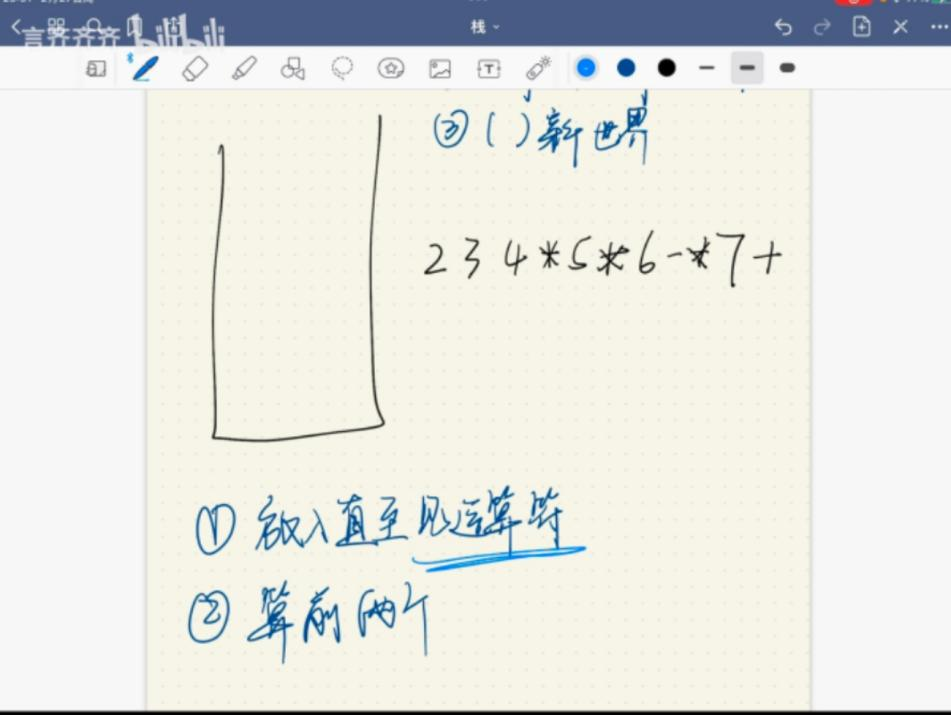 言齐齐齐 bilibili
栈
③ ( ) 新世界
2 3 4 * 5 * 6 - * 7 +
① 放入直至见运算符
② 算前两个